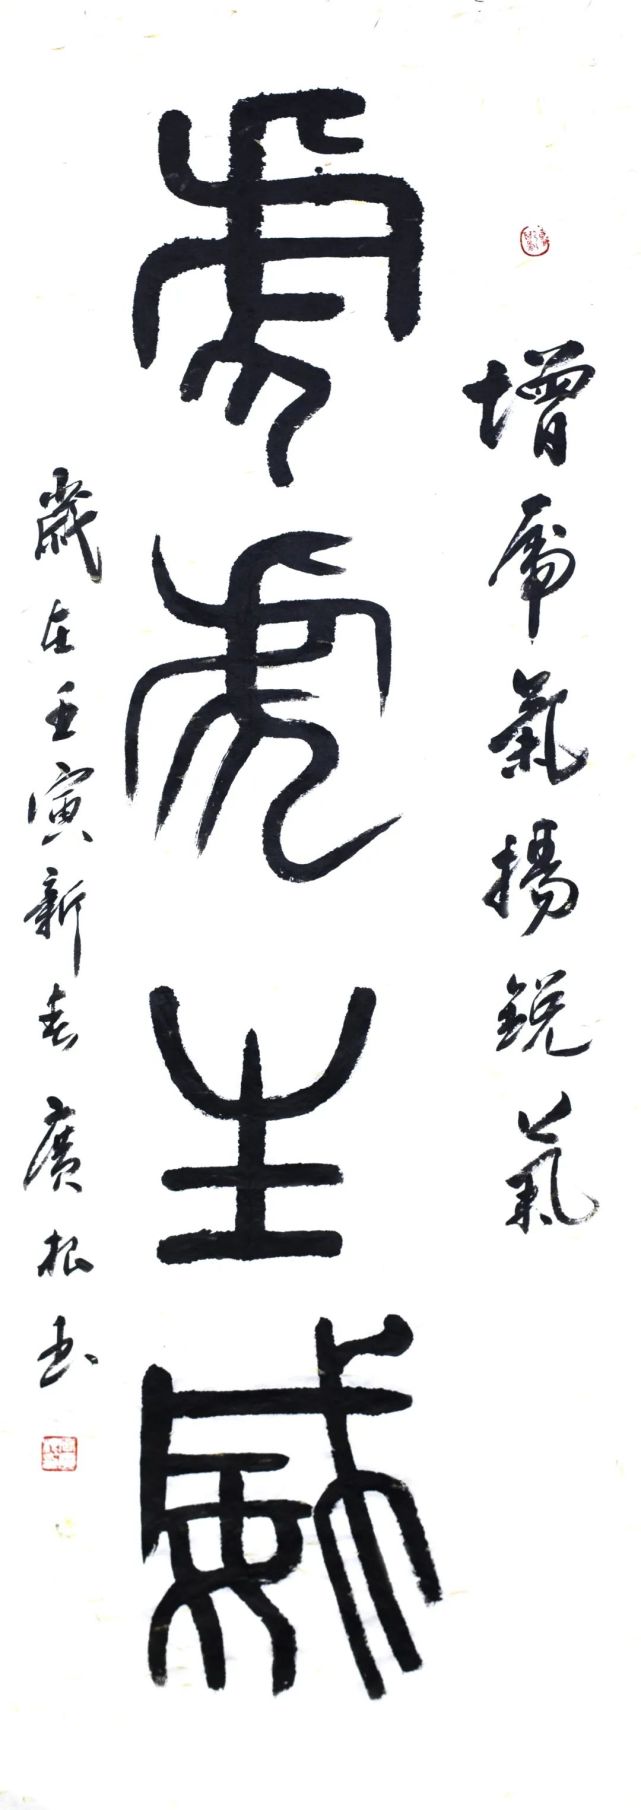 增虎氣揚銳氣
虎虎生威
歲在壬寅新春廣根书